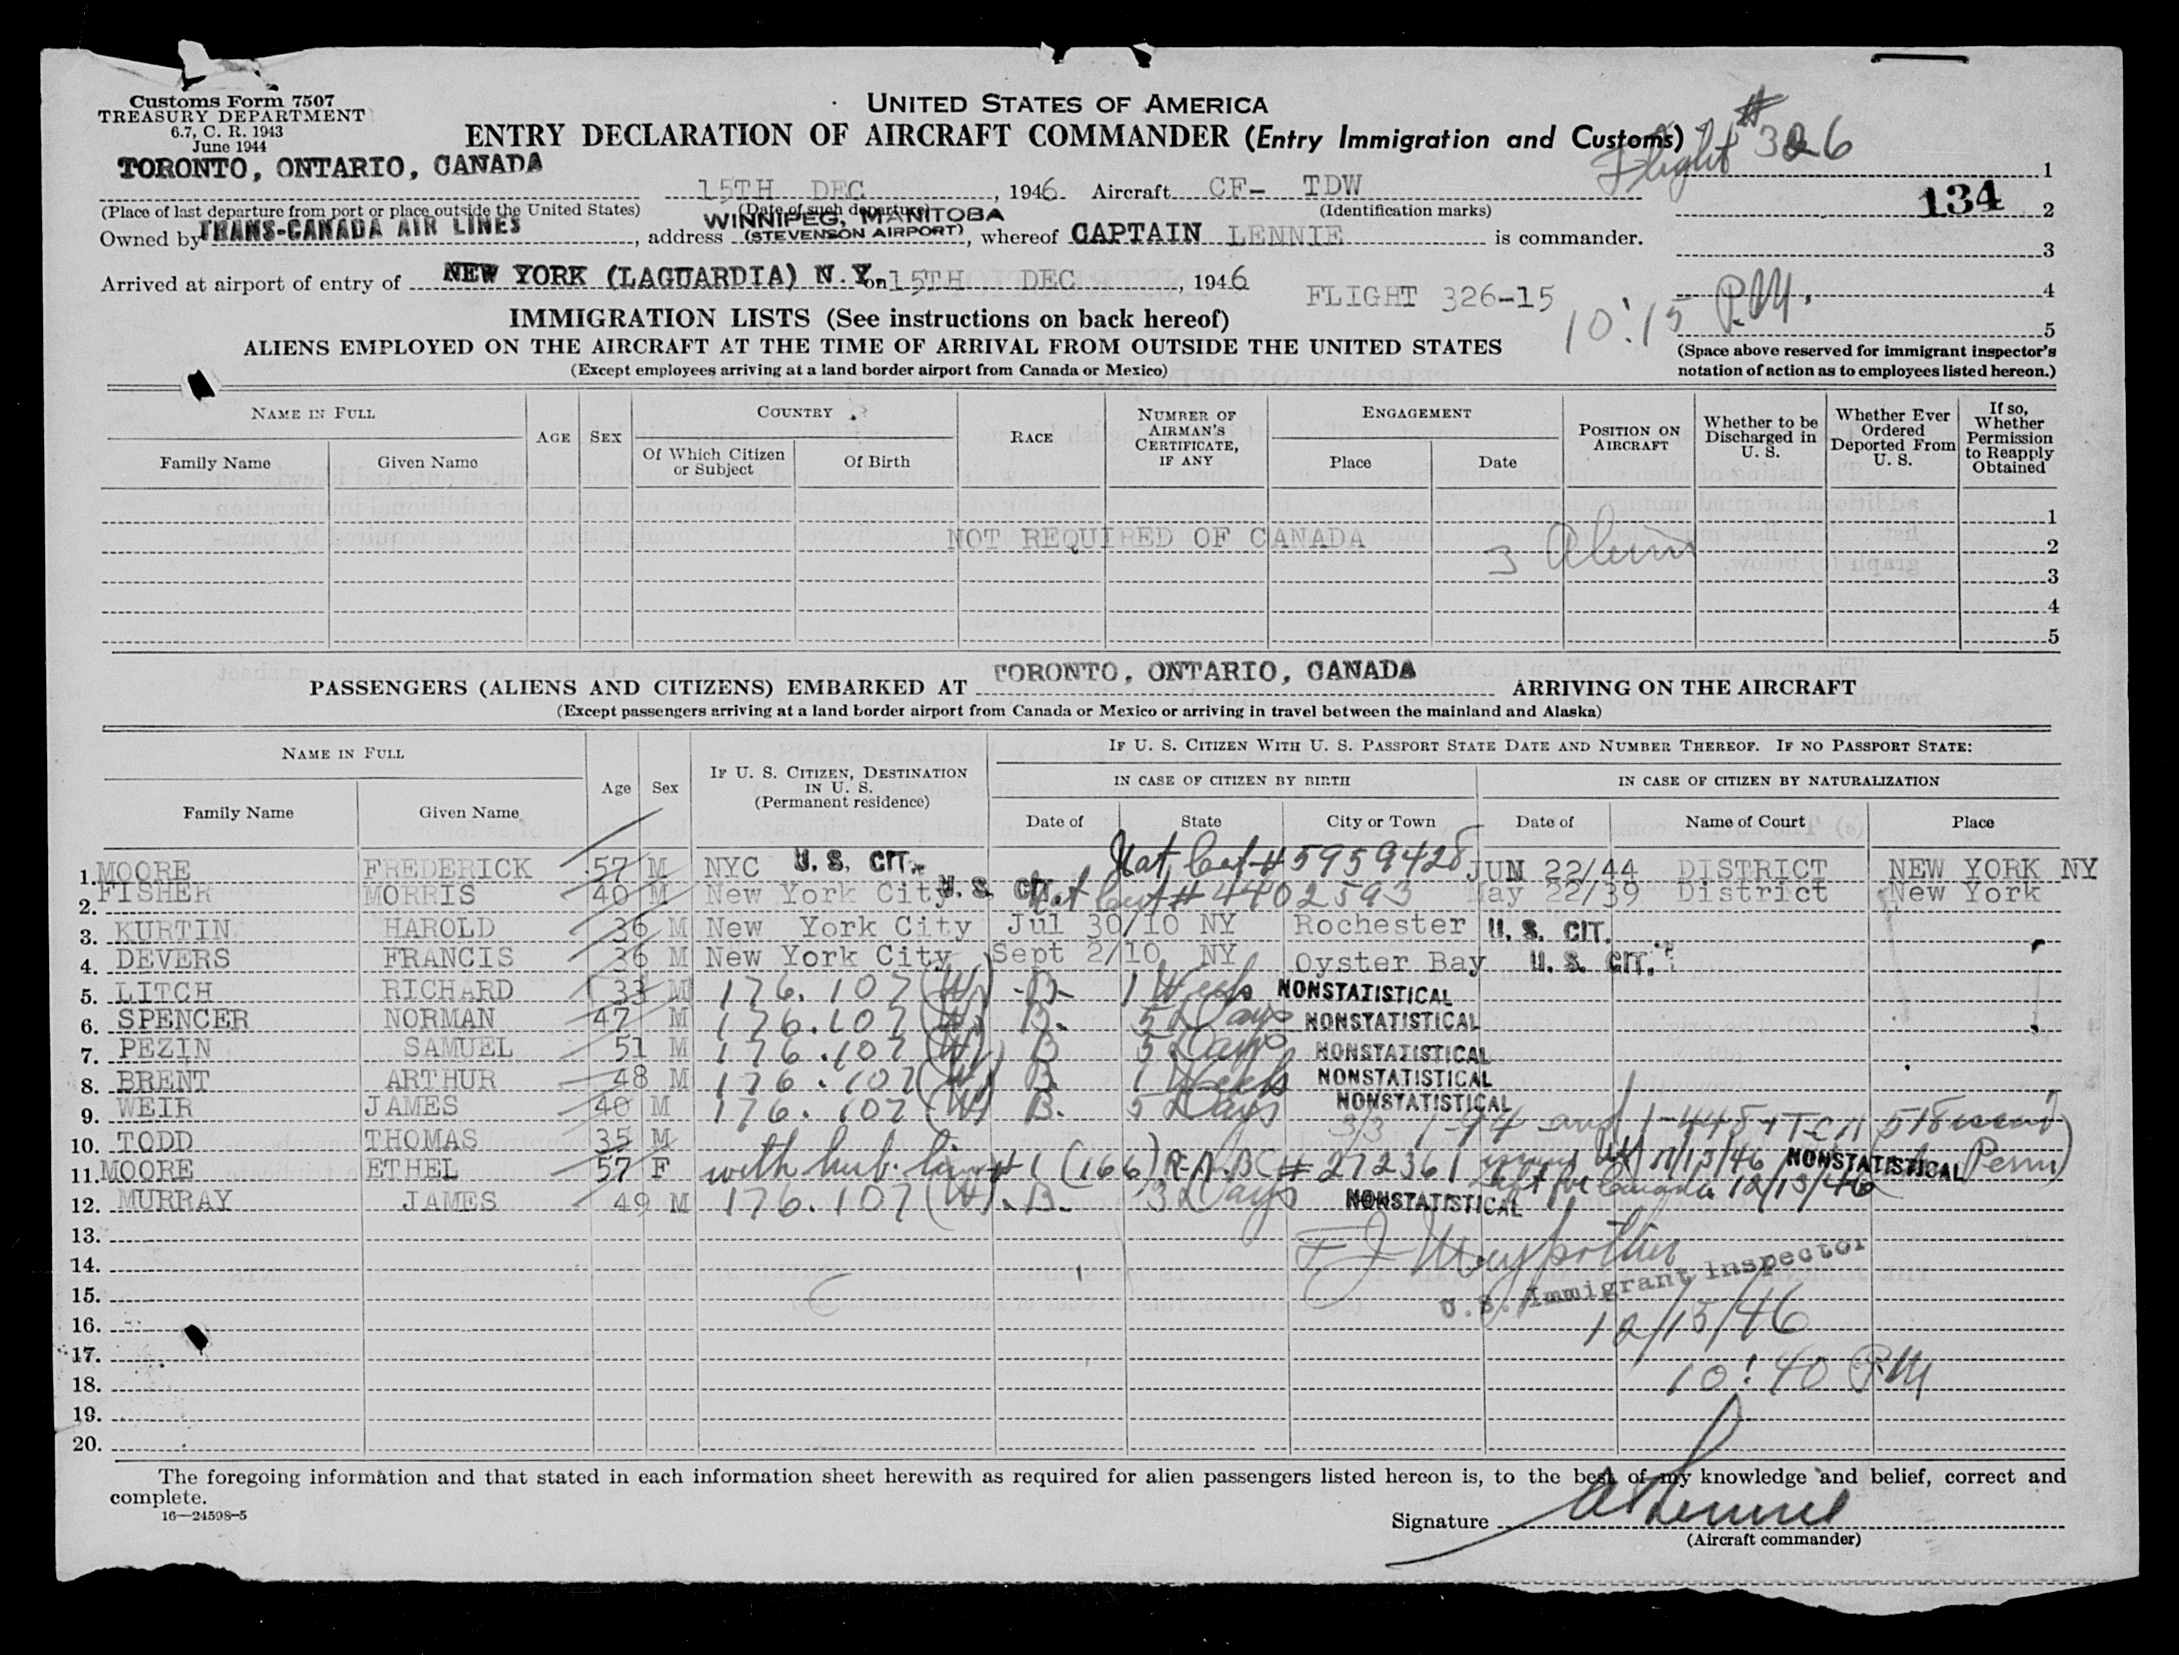 Customs Form 7507
TREASURY DEPARTMENT
6.7, C. R. 1943
June 1944
UNITED STATES OF AMERICA
ENTRY DECLARATION OF AIRCRAFT COMMANDER (Entry Immigration and Customs)
Flight # 326
TORONTO, ONTARIO, CANADA 15TH DEC, 1946 Aircraft CF- TDW 1
(Place of last departure from port or place outside the United States) (Date of such departure) (Identification marks)
134 2
Owned by TRANS-CANADA AIR LINES, address WINNIPEG, MANITOBA (STEVENSON AIRPORT), whereof CAPTAIN LENNIE is commander.
3
Arrived at airport of entry of NEW YORK (LAGUARDIA) N.Y. on 15TH DEC, 1946
FLIGHT 326-15
4
10:15 P.M.
5
IMMIGRATION LISTS (See instructions on back hereof)
ALIENS EMPLOYED ON THE AIRCRAFT AT THE TIME OF ARRIVAL FROM OUTSIDE THE UNITED STATES
(Except employees arriving at a land border airport from Canada or Mexico)
(Space above reserved for immigrant inspector's
notation of action as to employees listed hereon.)
NAME IN FULL AGE SEX COUNTRY RACE NUMBER OF AIRMAN'S CERTIFICATE, IF ANY ENGAGEMENT POSITION ON AIRCRAFT Whether to be Discharged in U. S. Whether Ever Ordered Deported From U. S. If so, Whether Permission to Reapply Obtained
Family Name Given Name Of Which Citizen or Subject Of Birth Place Date
1
NOT REQUIRED OF CANADA 3 2
3
4
5
PASSENGERS (ALIENS AND CITIZENS) EMBARKED AT TORONTO, ONTARIO, CANADA ARRIVING ON THE AIRCRAFT
(Except passengers arriving at a land border airport from Canada or Mexico or arriving in travel between the mainland and Alaska)
NAME IN FULL Age Sex IF U. S. CITIZEN, DESTINATION IN U. S. (Permanent residence) IF U. S. CITIZEN WITH U. S. PASSPORT STATE DATE AND NUMBER THEREOF. IF NO PASSPORT STATE:
IN CASE OF CITIZEN BY BIRTH IN CASE OF CITIZEN BY NATURALIZATION
Family Name Given Name Date of State City or Town Date of Name of Court Place
1. MOORE FREDERICK 57 M NYC U. S. CIT. Nat Cert # 5959428 JUN 22/44 DISTRICT NEW YORK NY
2. FISHER MORRIS 40 M New York City U. S. CIT. Nat Cert # 4402593 May 22/39 District New York
3. KURTIN HAROLD 36 M New York City Jul 30/10 NY Rochester U. S. CIT.
4. DEVERS FRANCIS 36 M New York City Sept 2/10 NY Oyster Bay U. S. CIT.
5. LITCH RICHARD 33 M 176.107 (W) B 1 Week NONSTATISTICAL
6. SPENCER NORMAN 47 M 176.107 (W) B. 5 Days NONSTATISTICAL
7. PEZIN SAMUEL 51 M 176.107 (W) B 5 Days NONSTATISTICAL
8. BRENT ARTHUR 48 M 176.107 (W) B. 1 Week NONSTATISTICAL
9. WEIR JAMES 40 M 176.107 (W) B. 5 Days NONSTATISTICAL
10. TODD THOMAS 35 M 3/3 1-94 and 1-448
11. MOORE ETHEL 57 F with hus. line #1 (166) R-A. BC # 272361 11/13/46 NONSTATISTICAL
Left for Canada 12/13/46
12. MURRAY JAMES 49 M 176.107 (W). B. 3 Days NONSTATISTICAL
13.
14. U. S. Immigrant Inspector
15.
16. 12/15/46
17.
18. 10:40 P.M
19.
20.
The foregoing information and that stated in each information sheet herewith as required for alien passengers listed hereon is, to the best of my knowledge and belief, correct and
complete.
16—24598-5
Signature A Lennie
(Aircraft commander)